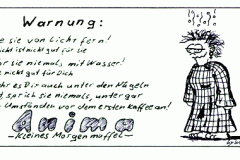 Warnung:
e sie von Licht fern!
icht ist nicht gut für sie
r sie niemals, mit Wasser!
nicht gut für Dich
hr es Dir auch unter den Nägeln
sprich sie niemals, unter gar
Umständen vor dem ersten Kaffee an!
Anima
-kleines Morgenmuffel-